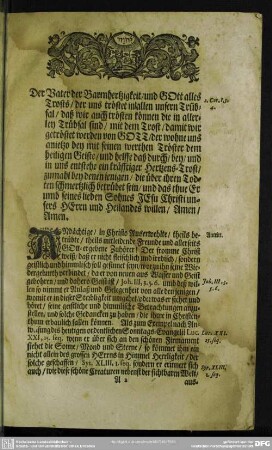 Der Vater der Barmhertzigkeit / und GOtt alles
Trosts / der uns tröstet in allen unsern Trüb-
sal / daß wir auch trösten können die in aller-
ley Trübsal sind / mit dem Trost / damit wir
getröstet werden von GOTT / der wohne uns
anietzo bey mit seinem werthen Tröster dem
heiligen Geiste / und helffe daß durch / bey / und
in uns entstehe ein kräftiger Hertzens-Trost /
zumahl bey denenjenigen / die über ihren Tod-
ten schmertzlich betrübet sein / und das thue Er
umb seines lieben Sohnes JEsu Christi un-
sers HErrn und Heilandes willen / Amen /
Amen.
2. Cor. I, 3.
4.
ANdächtige / in Christo Auserwehlte / theils be-
trübte / theils mitleidende Freunde und allerseits
GOtt-ergebene Zuhörer! Der fromme Christ
weiß / daß er nicht fleischlich und irrdisch / sondern
geistlich und himmlisch soll gesinnet seyn / weil er zwar
Wiedergeburth
gebohren / und dahero Geist ist / Joh. III. 3. 5. 6.
len so nimmt er Anlaß und Gelegenheit von aller
womit er in dieser Sterbligkeit umgehet / der was er siehet und
höret / seine geistliche und himmlische Betrachtungen anzu-
stellen / und solche Gedancken zu haben / die ihne in Christen-
thum erbaulich fallen können. Als zum Exempel nach An-
weisung des heutigen ordentlichen Sonntags-Evangelii Luc.
XXI, 25. seq. wenn er über sich an den schönen Firmament
siehet die Sonne / Mond und Sterne / so kömmet ihm ein
nicht allein des großen HErrns in Himmel Herrligkeit / der
solche geschaffen / Syr. XLIII, 1. seq. sondern er erinnert sich
auch / wie diese schöne Creaturen nebenst der sichtbaren Welt /
Joh. III. 3.
5. 6.
Luc. XXI.
25. seq.
Syr. XLIII,
1. seq.
A 2